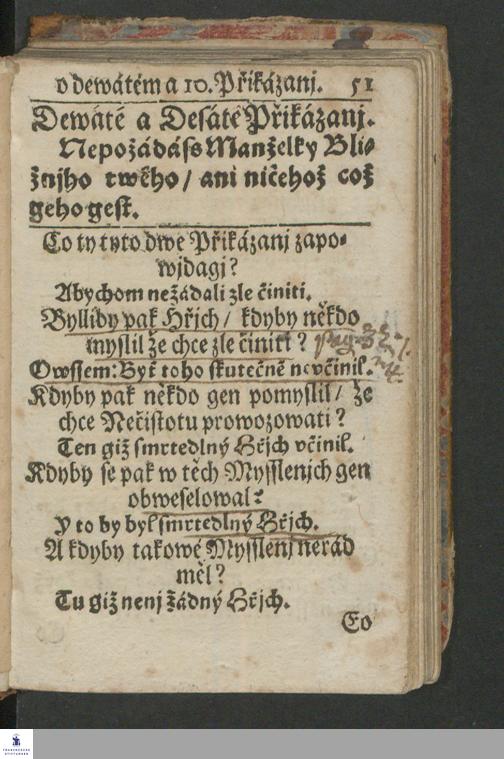 o dewátém a 10. Přikázanj. 51
Dewáté a Desáté Přikázanj.
Nepožádáss Manželky Bli⸗
žnjho twého / ani ničehož což
geho gest.
Co ty tyto dwe Přikázanj zapo⸗
wjdagj?
Abychom nežádali zle činiti.
Bylliby pak Hřjch / kdyby někdo
myslil že chce zle činiti?
Owssem: Byť toho skutečně nevčinil.
Kdyby pak někdo gen pomyslil / že
chce Nečistotu prowozowati?
Ten giž smrtedlný Hřjch včinil.
Kdyby se pak w těch Mysslenjch gen
obweselowal?
Y to by byl smrtedlný Hřjch.
A kdyby takowé Mysslenj nerád
měl?
Tu giž nenj žádný Hřjch.
Co